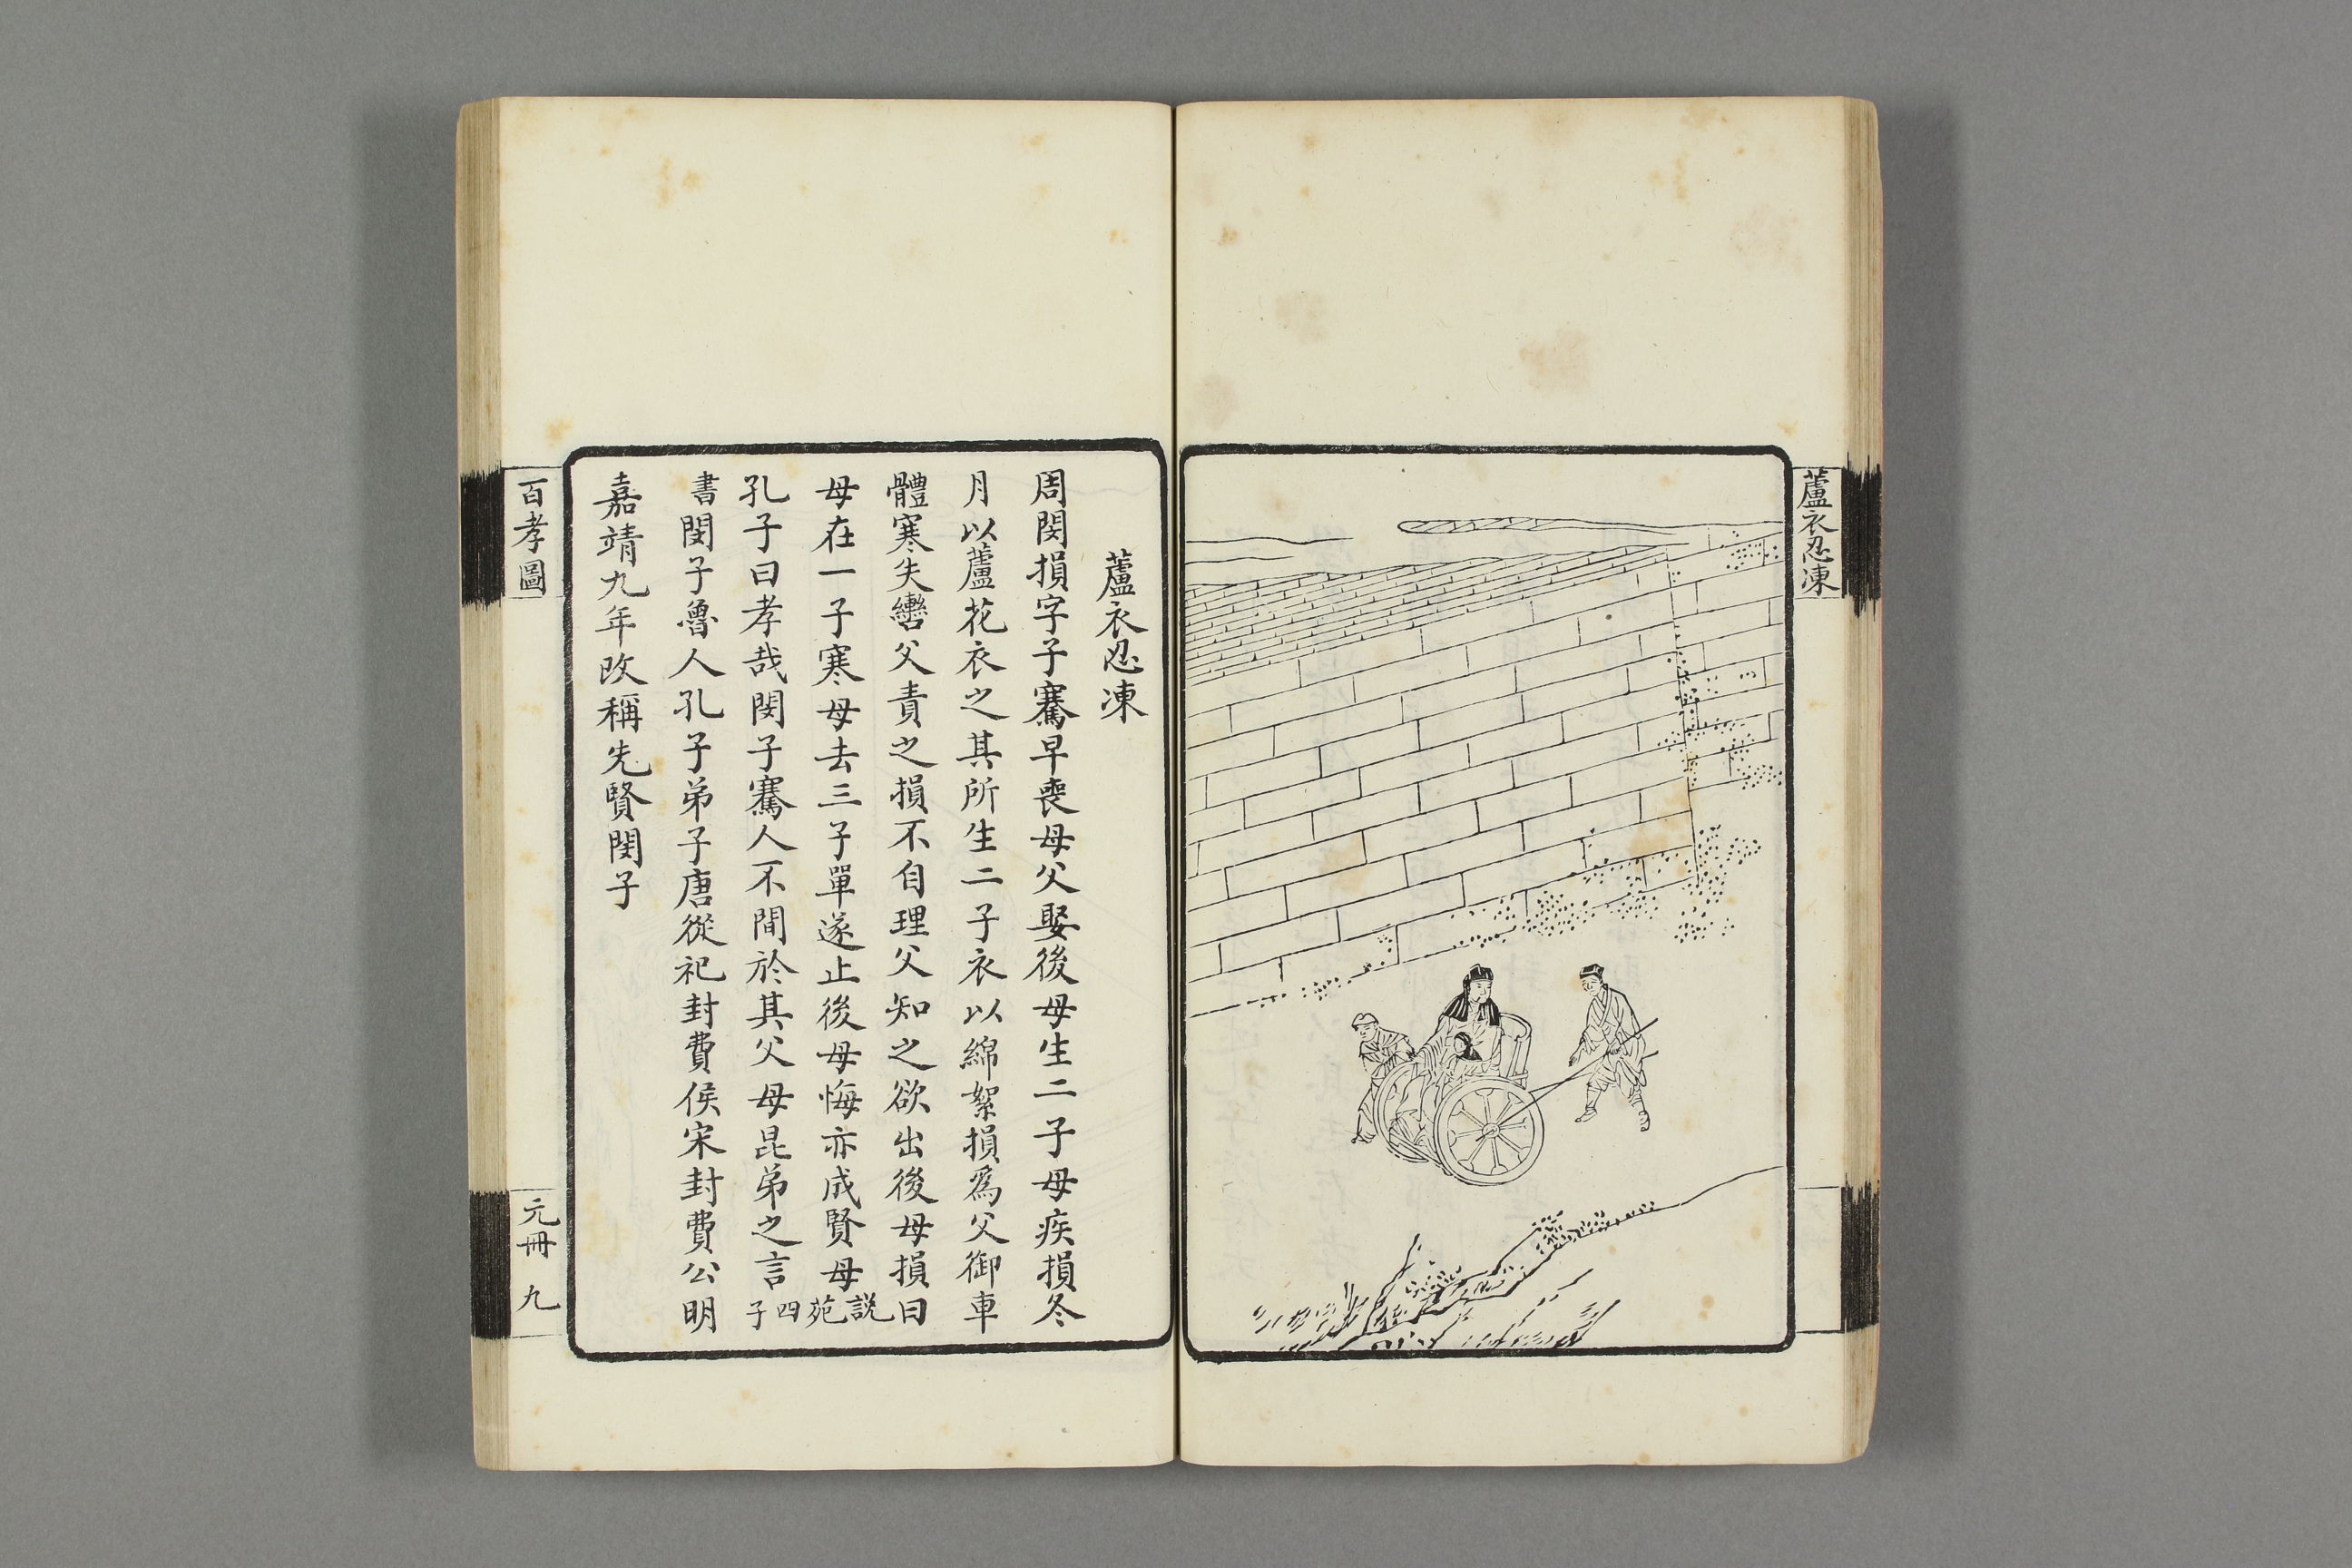 蘆衣忍凍
蘆衣忍凍
周閔損字子騫早喪母父娶後母生二子母疾損冬
月以蘆花衣之其所生二子衣以綿絮損爲父御車
體寒失轡父責之損不自理父知之欲出後母損曰
母在一子寒母去三子單遂止後母悔亦成賢母説苑
孔子曰孝哉閔子騫人不間於其父母昆弟之言四子
書閔子魯人孔子弟子唐從祀封費侯宋封費公明
嘉靖九年改稱先賢閔子
百孝圖
元冊 九